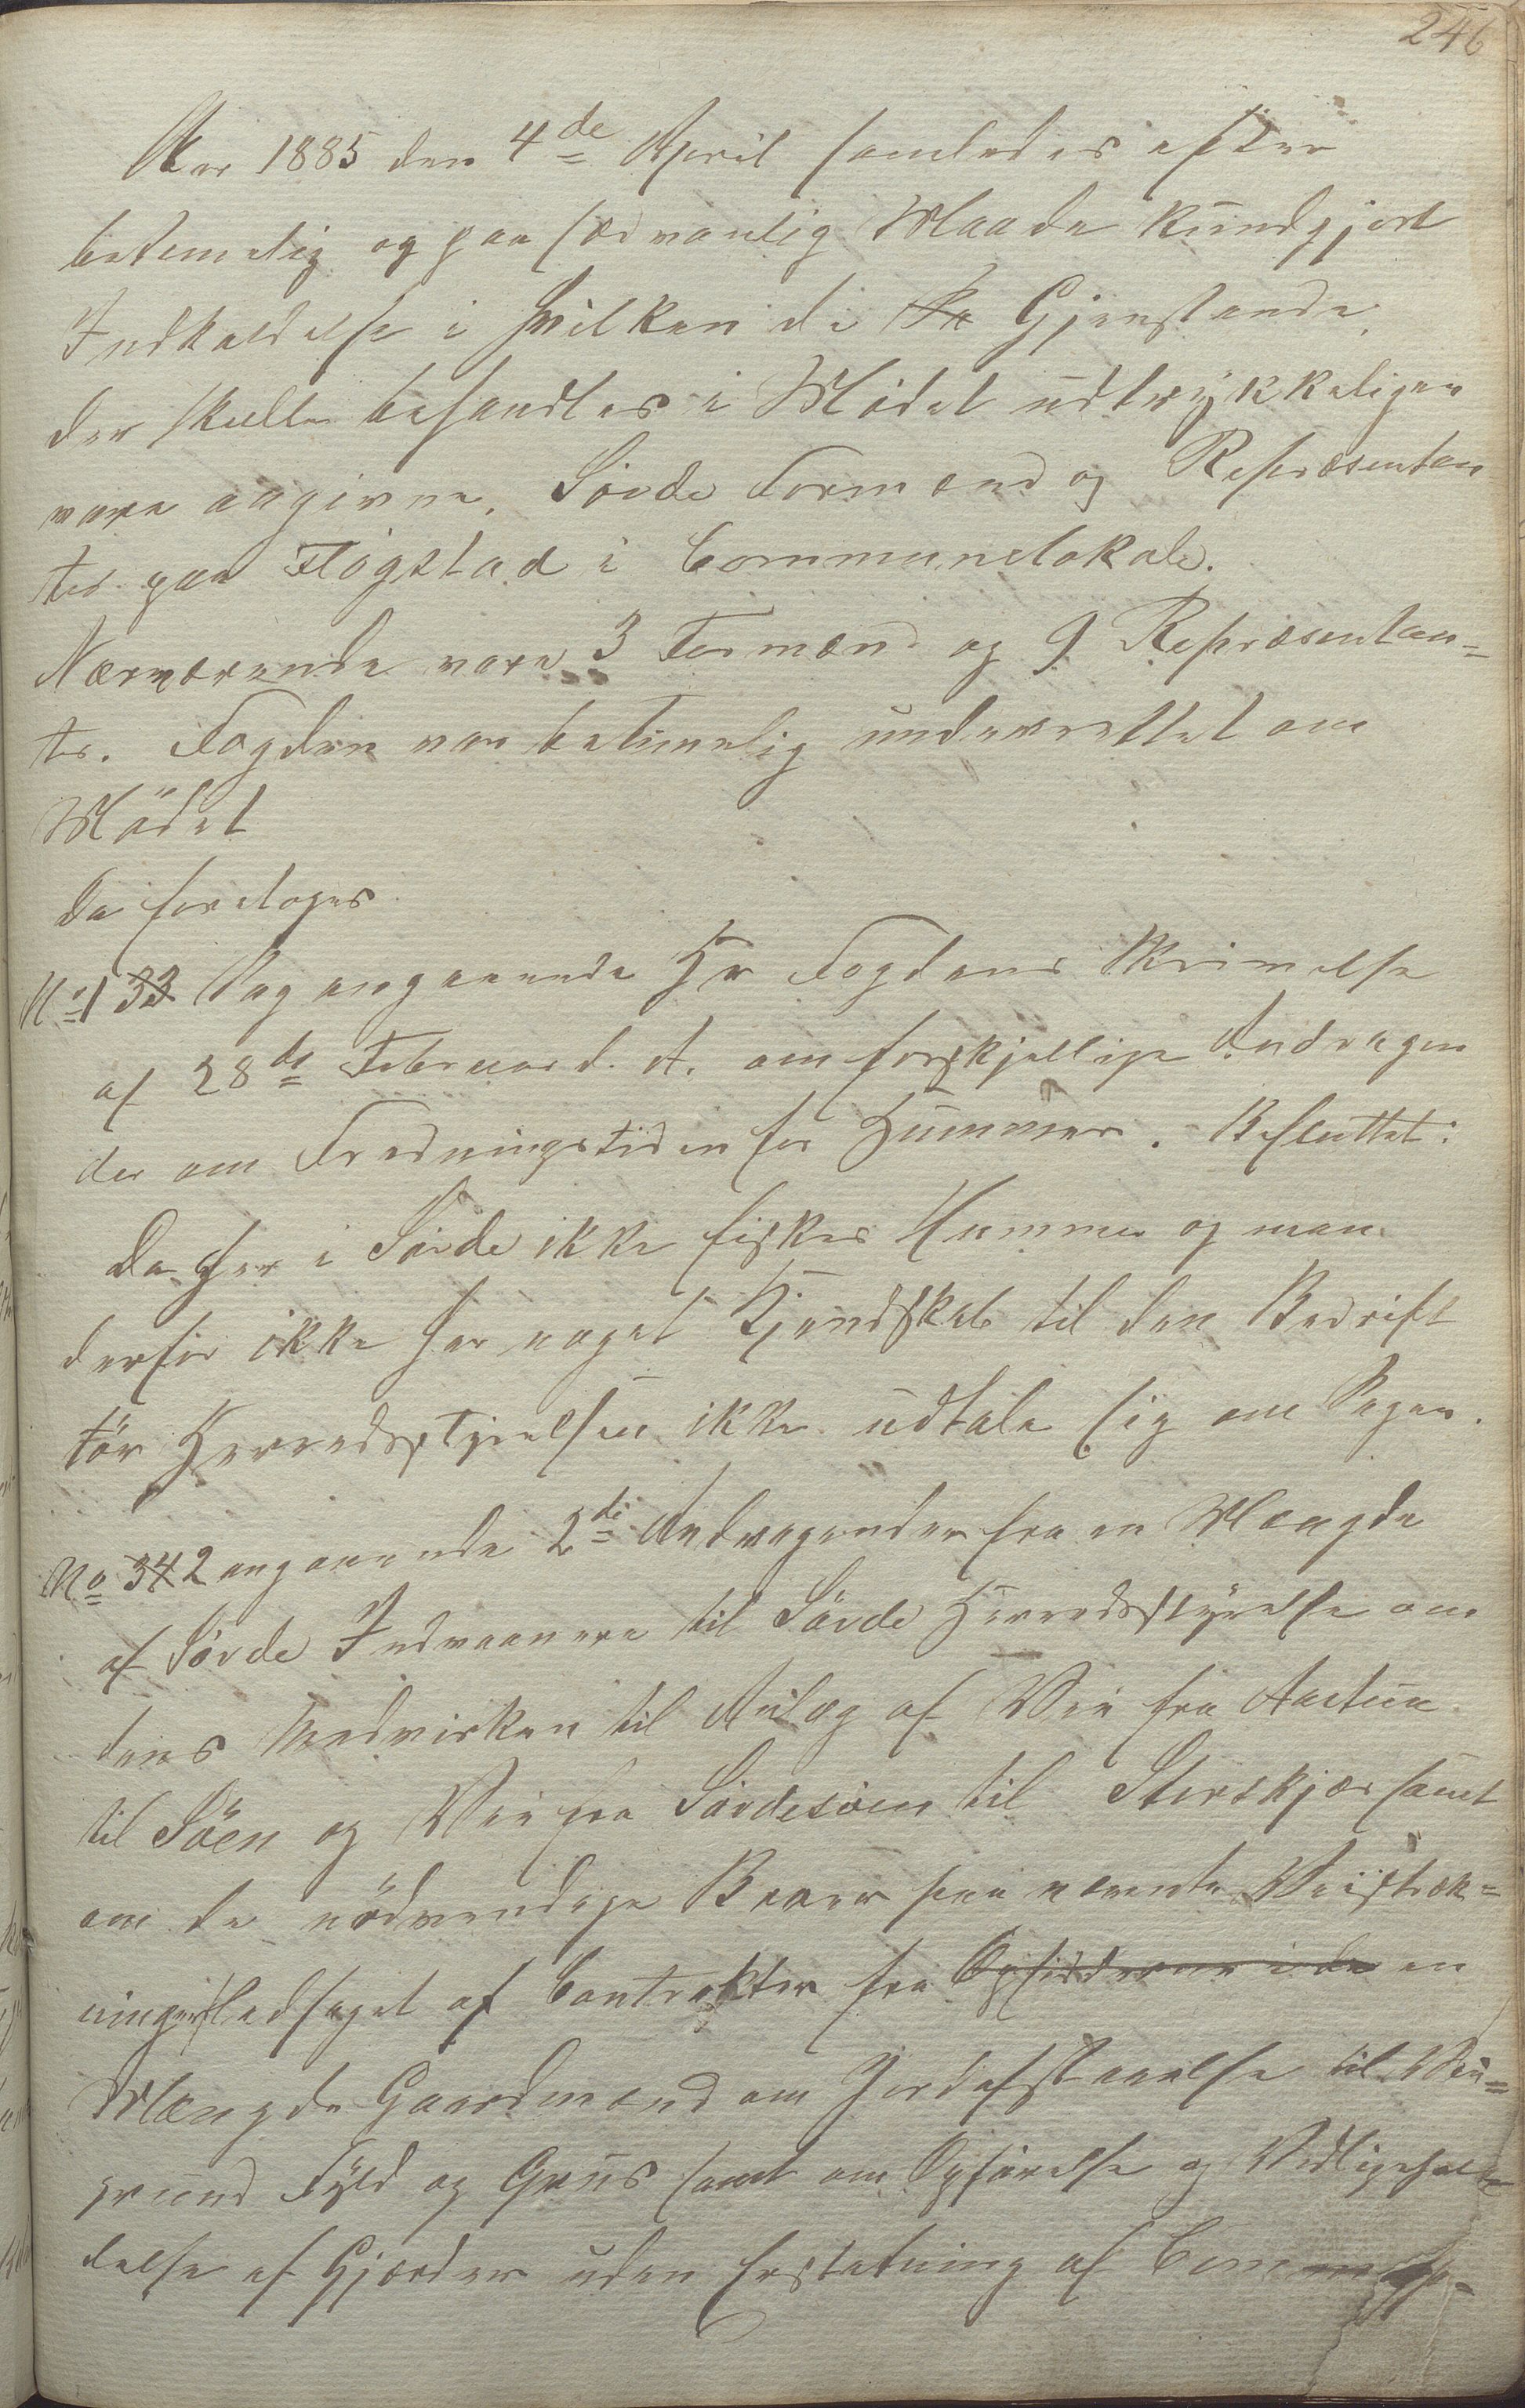 246
Aar 1885 den 4de April samledes efter
betimelig og paa sædvanlig Maade kundgjort
Indkaldelse i hvilken de Gjenstande,
der skulle behandles i Mødet udtrykkeligen
vare angivne, Søvde Formænd og Repræsentan
ter paa Fløgstad i Communelokale.
Nærværende vare 3 Formænd og 9 Repræsentan-
ter. Fogden var betimelig underrettet om
Mødet
Da foretoges
No 1 33 Sag angaaende Hr Fogdens Skrivelse
af 28de Februar d. A. om forskjellige Andragen
der om Fredningstiden for Hummer. Besluttet:
Da her i Søvde ikke fiskes Hummer og man
derfor ikke har noget Kjendskab til den Bedrift
tør Herredsstyrelsen ikke udtale sig om Sagen.
No 34 2 angaaende 2de Andragender fra en Mængde
af Søvde Indvaanere til Søvde Herredsstyrelse om
dens Medvirken til Anlæg af Vei fra Aartun
til Søen og Vei fra Søvdesøen til Storskjær samt
om de nødvendige Broer paa nævnte Veistræk-
ninger ledsaget af Contrakter fra Opsidderne i de en
Mængde Gaardmænd om Jordafstaaelse til Vei-
grund Fyld og Gruus samt om Opførelse og Vedligehol
delse af Gjærder uden Erstatning af Commu-